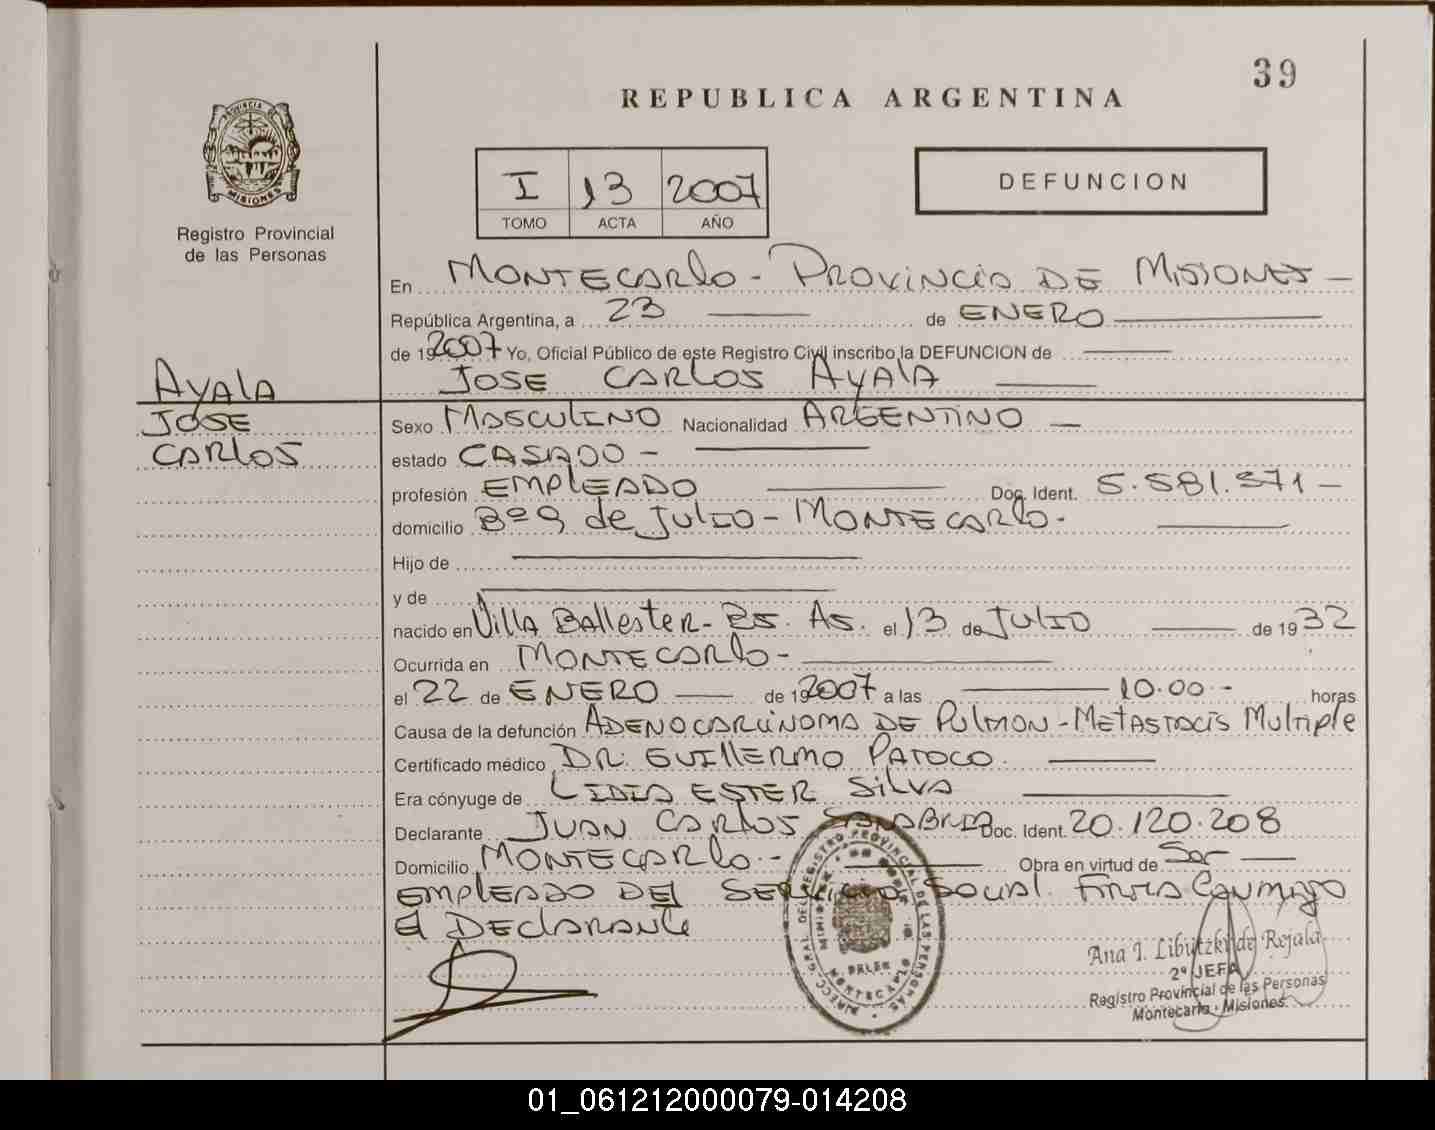 39
REPUBLICA ARGENTINA
PROVINCIA DE
MISIONES
Registro Provincial
de las Personas
I 13 2007
TOMO ACTA AÑO
DEFUNCION
En MONTECARLO - PROVINCIA DE MISIONES -
República Argentina, a 23 de ENERO
de 192007 Yo, Oficial Público de este Registro Civil inscribo la DEFUNCION de
JOSE CARLOS AYALA
AYALA
JOSE
CARLOS
Sexo MASCULINO Nacionalidad ARGENTINO -
estado CASADO -
profesión EMPLEADO Doc. Ident. 5.581.371 -
domicilio Bº 9 de JULIO - MONTECARLO -
Hijo de
y de
nacido en Villa Ballester - Bs. As. el 13 de JULIO de 1932
Ocurrida en MONTECARLO -
el 22 de ENERO de 192007 a las 10.00 - horas
Causa de la defunción ADENOCARCINOMA DE PULMON - METASTACIS MultiplE
Certificado médico DR. GUILLERMO PATOCO
Era cónyuge de LIDIA ESTER SILVA
Declarante JUAN CARLOS SANABRIA Doc. Ident. 20.120.208
Domicilio MONTECARLO - Obra en virtud de Ser
EMPLEADO DEL SERVICIO SOCIAL. FIRMA CONMIGO
El DECLARANTE
Ana I. Libutzki de Rejala
2º JEFA
Registro Provincial de las Personas
Montecarlo - Misiones
01_061212000079-014208